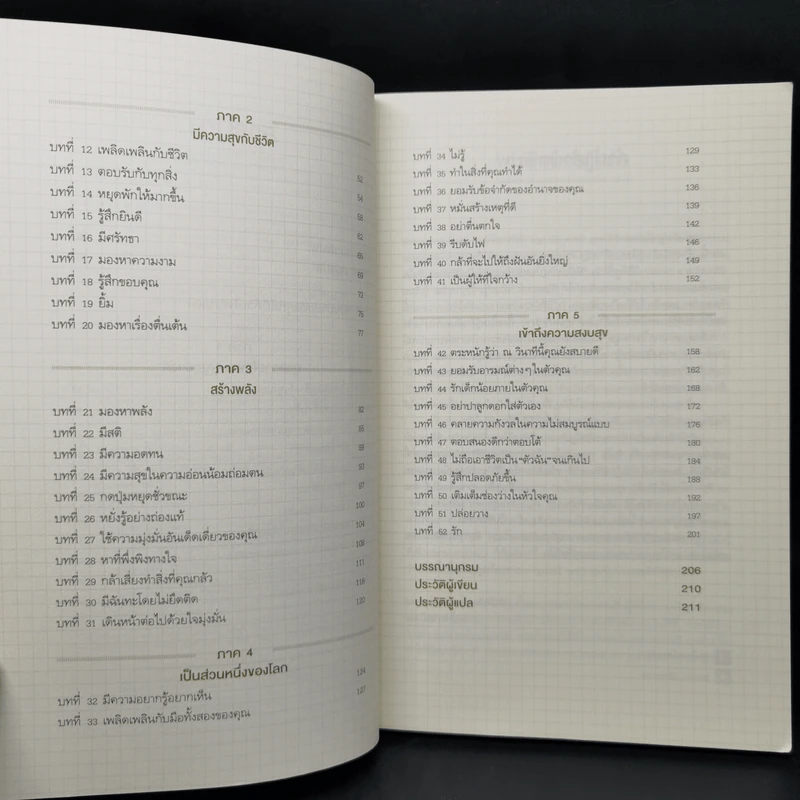 ภาค 2
มีความสุขกับชีวิต
บทที่ 12 เพลิดเพลินกับชีวิต
บทที่ 13 ตอบรับกับทุกสิ่ง 52
บทที่ 14 หยุดพักให้มากขึ้น 54
บทที่ 15 รู้สึกยินดี 58
บทที่ 16 มีศรัทธา 62
บทที่ 17 มองหาความงาม 66
บทที่ 18 รู้สึกขอบคุณ 69
บทที่ 19 ยิ้ม 73
บทที่ 20 มองหาเรื่องตื่นเต้น 75
77
ภาค 3
สร้างพลัง
บทที่ 21 มองหาพลัง 82
บทที่ 22 มีสติ 85
บทที่ 23 มีความอดทน 88
บทที่ 24 มีความสุขในความอ่อนน้อมถ่อมตน 93
บทที่ 25 กดปุ่มหยุดชั่วขณะ 97
บทที่ 26 หยั่งรู้อย่างถ่องแท้ 100
บทที่ 27 ใช้ความมุ่งมั่นอันเด็ดเดี่ยวของคุณ 104
บทที่ 28 หาที่พึ่งพิงทางใจ 108
บทที่ 29 กล้าเสี่ยงทำสิ่งที่คุณกลัว 111
บทที่ 30 มีฉันทะโดยไม่ยึดติด 116
บทที่ 31 เดินหน้าต่อไปด้วยใจมุ่งมั่น 120
ภาค 4
เป็นส่วนหนึ่งของโลก
บทที่ 32 มีความอยากรู้อยากเห็น 124
บทที่ 33 เพลิดเพลินกับมือทั้งสองของคุณ 127
บทที่ 34 ไม่รู้ 129
บทที่ 35 ทำในสิ่งที่คุณทำได้ 133
บทที่ 36 ยอมรับข้อจำกัดของอำนาจของคุณ 136
บทที่ 37 หมั่นสร้างเหตุที่ดี 139
บทที่ 38 อย่าตื่นตกใจ 142
บทที่ 39 รีบดับไฟ 146
บทที่ 40 กล้าที่จะไปให้ถึงฝันอันยิ่งใหญ่ 149
บทที่ 41 เป็นผู้ให้ที่ใจกว้าง 152
ภาค 5
เข้าถึงความสงบสุข
บทที่ 42 ตระหนักรู้ว่า ณ วินาทีนี้คุณยังสบายดี 158
บทที่ 43 ยอมรับอารมณ์ต่างๆ ในตัวคุณ 162
บทที่ 44 รักเด็กน้อยภายในตัวคุณ 168
บทที่ 45 อย่าปาลูกดอกใส่ตัวเอง 172
บทที่ 46 คลายความกังวลในความไม่สมบูรณ์แบบ 176
บทที่ 47 ตอบสนองดีกว่าตอบโต้ 180
บทที่ 48 ไม่ถือเอาชีวิตเป็น "ตัวฉัน" จนเกินไป 184
บทที่ 49 รู้สึกปลอดภัยขึ้น 188
บทที่ 50 เติมเต็มช่องว่างในหัวใจคุณ 192
บทที่ 51 ปล่อยวาง 197
บทที่ 52 รัก 201
บรรณานุกรม 206
ประวัติผู้เขียน 210
ประวัติผู้แปล 211